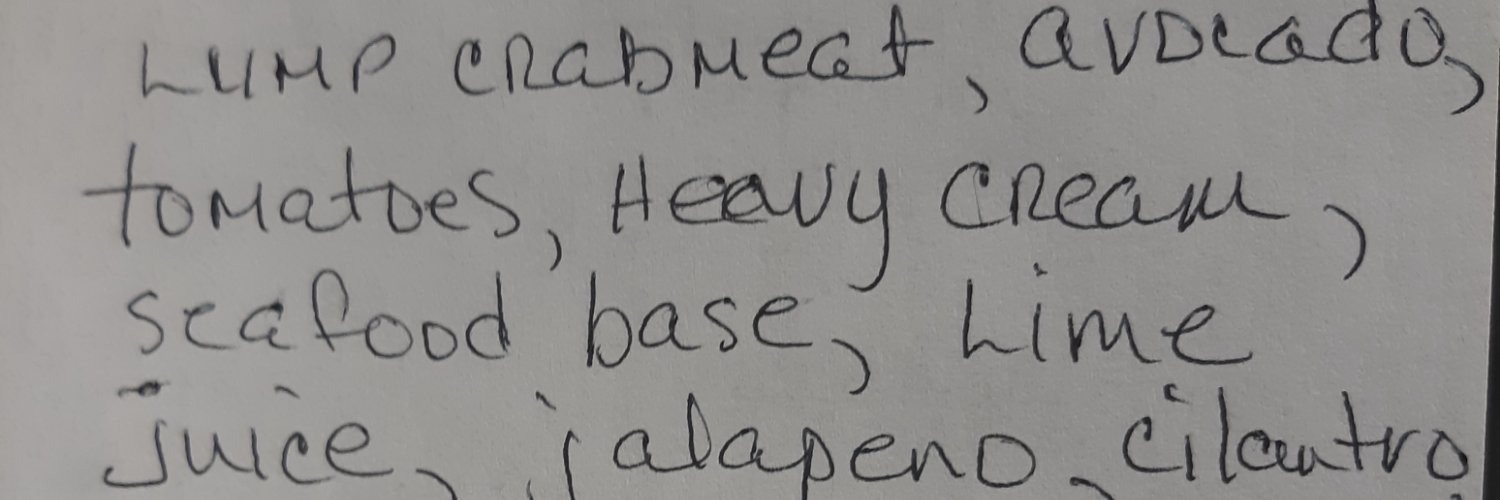 Lump crabmeat, avocado,
tomatoes, Heavy cream,
seafood base, Lime
juice, jalapeno, cilantro